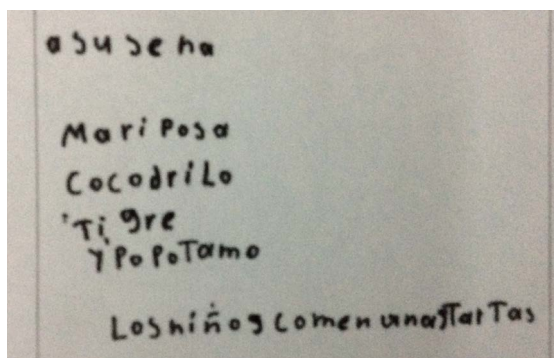 asusena
Mariposa
Cocodrilo
Tigre
ypopotamo
Losniños comen unastartas